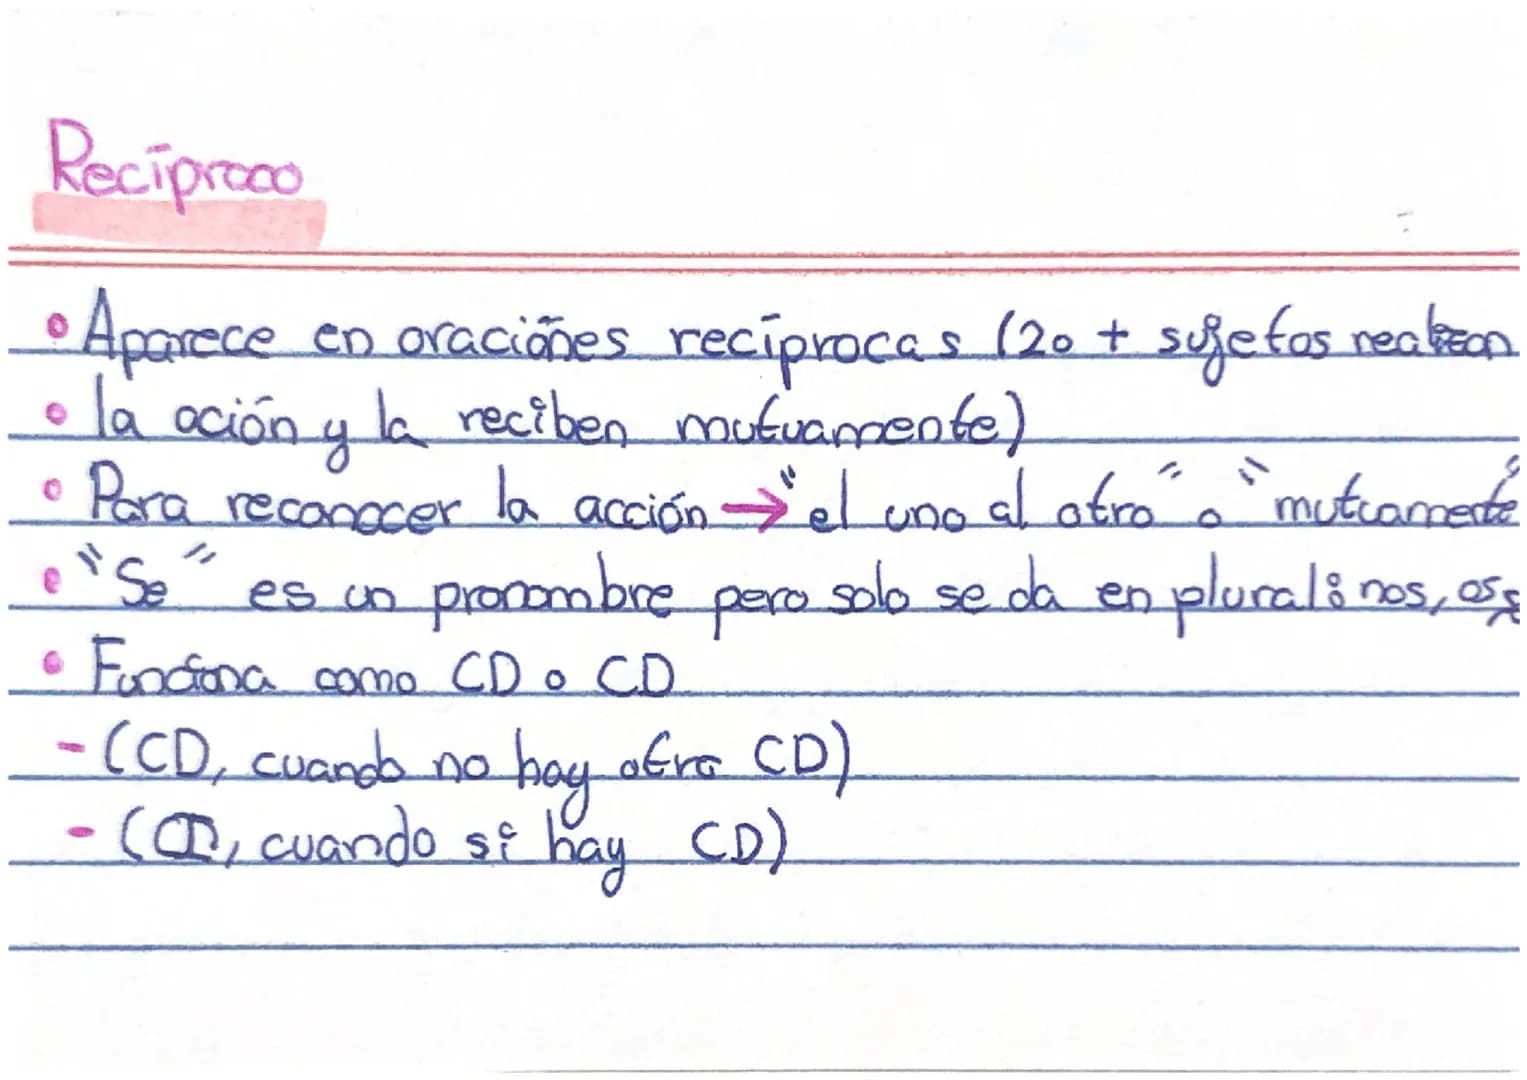 Recíproco
• Aparece en oraciones recíprocas (2 o + sujetos realizan
• la acción y la reciben mutuamente)
• Para reconocer la acción → "el uno al otro" o "mutuamente
• "Se" es un pronombre pero solo se da en plural: nos, os,
• Funciona como CD o CD
- (CD, cuando no hay otro CD)
- (CI, cuando sí hay CD)